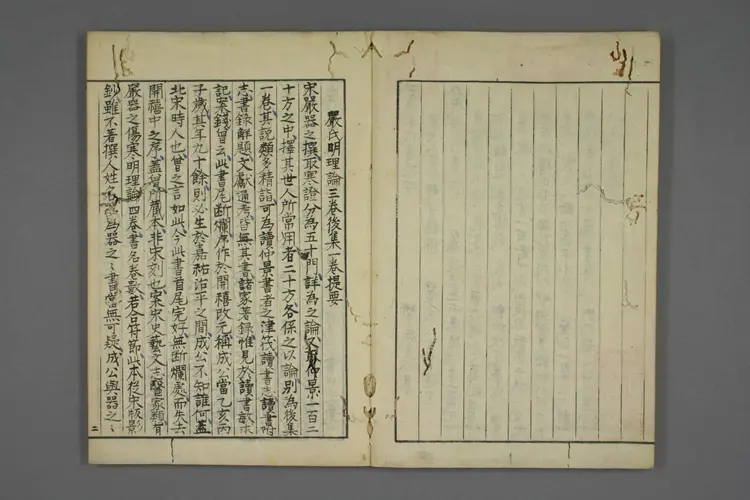 嚴氏明理論三卷後集一卷提要
宋嚴器之撰取寒證分為五十門詳為之論又取仲景一百二
十方之中擇其世人所常用者二十方各保之以論別為後集
一卷其說頗多精詣可為讀仲景書者之津筏讀書志讀書附
志書錄解題文獻通考皆無其書諸家著錄惟見於讀書敏求
記案錢曾云此書尾斷爛序作於開禧改元稱成公當乙亥丙
子歲其年九十餘則必生於嘉祐治平之間成公不知誰何蓋
北宋時人也曾之言如此今此書首尾完好無斷爛處而失去
開禧中之序蓋曾所藏本非宋刻也案宋史藝文志醫家類有
嚴器之傷寒明理論四卷書名卷數若合符節此本杉宋版影
鈔雖不著撰人姓名為器之之書當無可疑成公與器之之
二